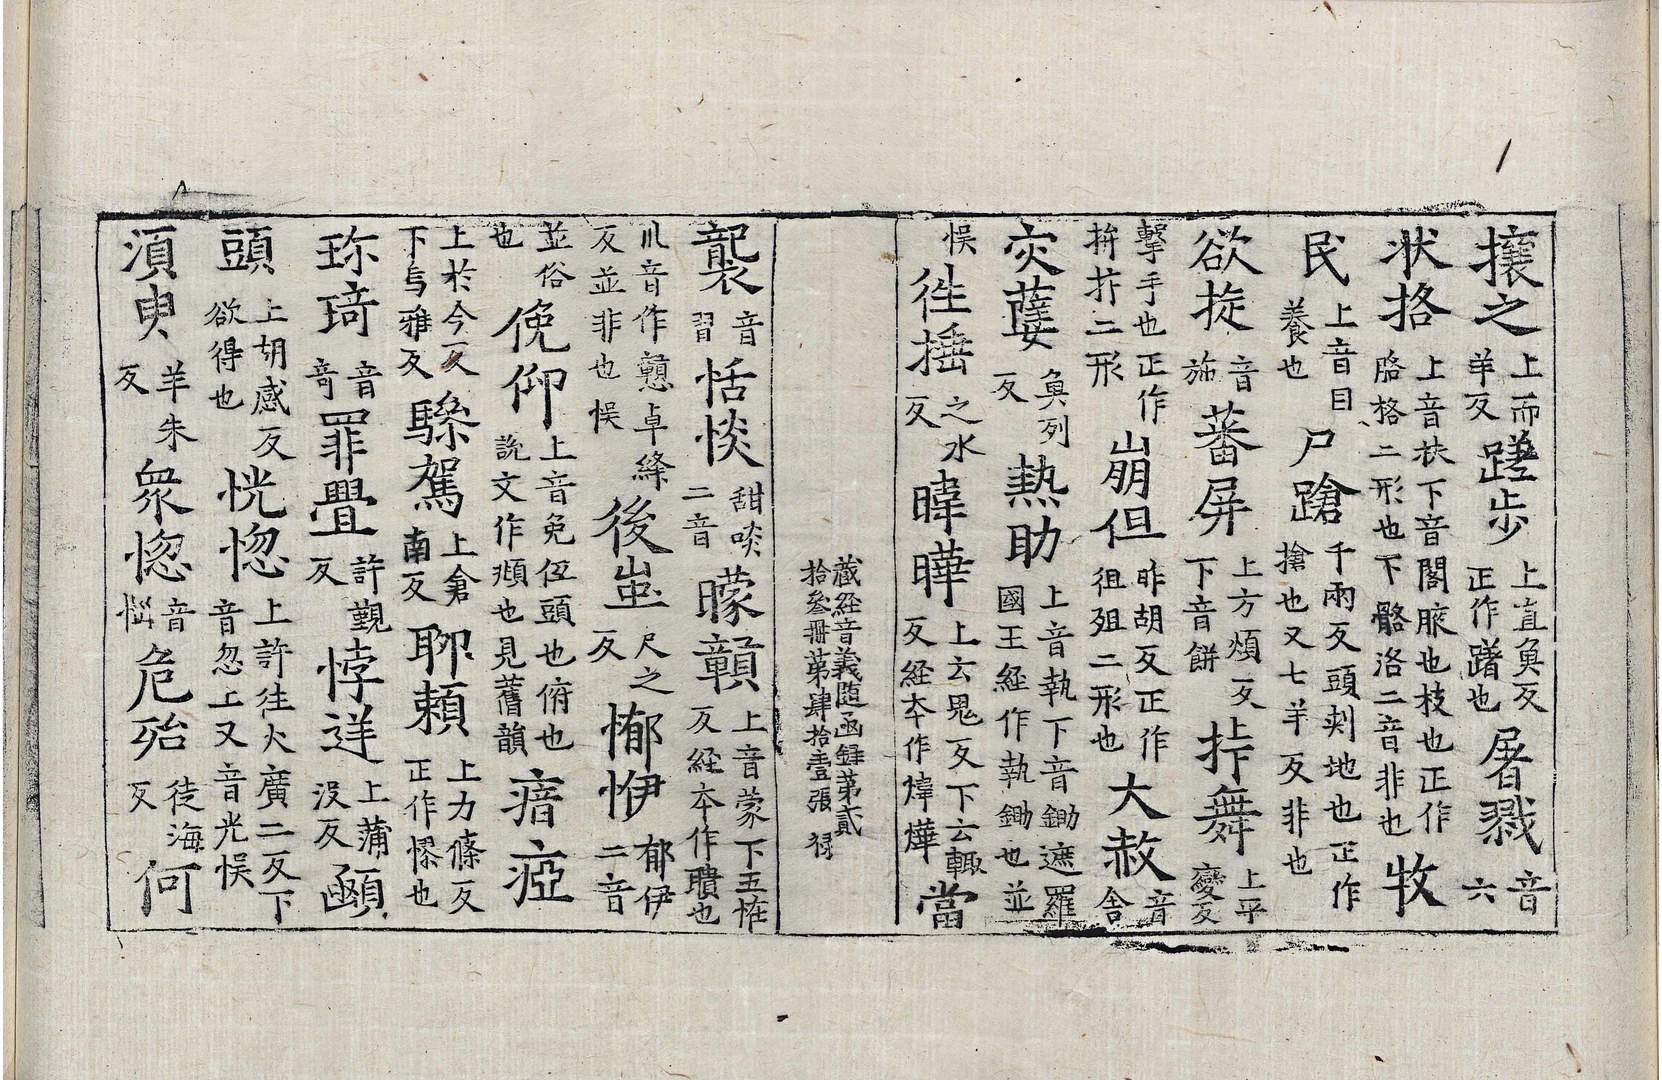 攘之上而羊反蹉歨上直奐反正作躇也屠戮音六
状挌上音扶下音閣腋也枝也正作胳格二形也下骼洛二音非也牧
民上音目養也尸蹌千兩反頭刾地也正作搶也又七羊反非也
欲㧞音施蕃屏上方煩反下音餅抃舞上平變反
擊手也正作拚抃二形崩但昨胡反正作徂殂二形也大赦音舍
灾㜸奐列反熱助上音執下音鋤遮羅國王経作執鋤也並
悮徃捶之水反暐曄上云鬼反下云輒反経夲作煒燁當
藏経音義隨函録第貳
拾叁冊第肆拾壹張 禄
襲音習恬惔甜啖二音矇顡上音蒙下五恠反経夲作聵也
爪音作戇卓絳反並非也悮後蚩尺之反悀㤚郁伊二音
並俗俛仰上音免伍頭也俯也說文作頫也見舊韻瘖瘂
也上於今反下烏雅反驂駕上倉南反聊頼上力條反正作憀也
珎琦音奇罪舋許覲反悖逆上蒲没反顄
頭上胡感反欲得也恍惚上許往火廣二反下音忽上又音光悮
湏臾羊朱反衆惚音惱危殆徒海反何